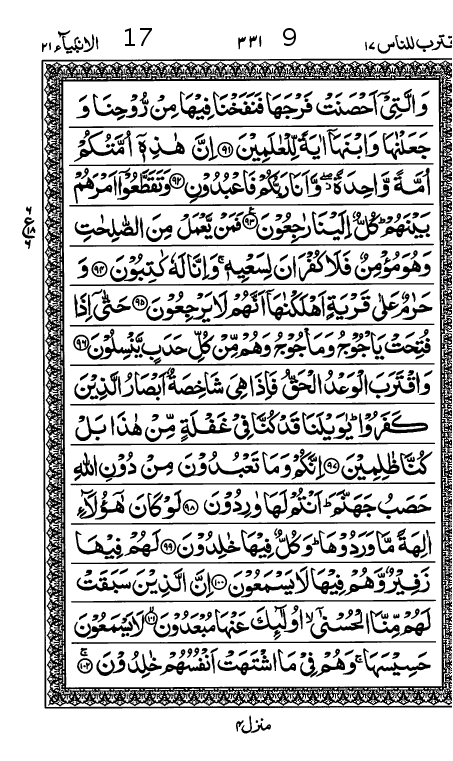 اقترب للناس ۱۷ 9 ۳۳۱ 17 الانبیآء ۲۱
وَالَّتِیْۤ اَحْصَنَتْ فَرْجَهَا فَنَفَخْنَا فِیْهَا مِنْ رُّوْحِنَا وَ
جَعَلْنٰهَا وَابْنَهَاۤ اٰیَةً لِّلْعٰلَمِیْنَ ۹۱ اِنَّ هٰذِهٖۤ اُمَّتُكُمْ
اُمَّةً وَّاحِدَةً ۖ٘ وَّاَنَا رَبُّكُمْ فَاعْبُدُوْنِ ۹۲ وَتَقَطَّعُوْۤا اَمْرَهُمْ
بَیْنَهُمْ ؕ كُلٌّ اِلَیْنَا رٰجِعُوْنَ ۹۳ فَمَنْ یَّعْمَلْ مِنَ الصّٰلِحٰتِ
وَهُوَ مُؤْمِنٌ فَلَا كُفْرَانَ لِسَعْیِهٖ ۚ وَاِنَّا لَهٗ كٰتِبُوْنَ ۹۴ وَ
حَرٰمٌ عَلٰی قَرْیَةٍ اَهْلَكْنٰهَاۤ اَنَّهُمْ لَا یَرْجِعُوْنَ ۹۵ حَتّٰۤی اِذَا
فُتِحَتْ یَاْجُوْجُ وَمَاْجُوْجُ وَهُمْ مِّنْ كُلِّ حَدَبٍ یَّنْسِلُوْنَ ۹۶
وَاقْتَرَبَ الْوَعْدُ الْحَقُّ فَاِذَا هِیَ شَاخِصَةٌ اَبْصَارُ الَّذِیْنَ
كَفَرُوْا ؕ یٰوَیْلَنَا قَدْ كُنَّا فِیْ غَفْلَةٍ مِّنْ هٰذَا بَلْ
كُنَّا ظٰلِمِیْنَ ۹۷ اِنَّكُمْ وَمَا تَعْبُدُوْنَ مِنْ دُوْنِ اللّٰهِ
حَصَبُ جَهَنَّمَ ؕ اَنْتُمْ لَهَا وٰرِدُوْنَ ۹۸ لَوْ كَانَ هٰۤؤُلَآءِ
اٰلِهَةً مَّا وَرَدُوْهَا ؕ وَكُلٌّ فِیْهَا خٰلِدُوْنَ ۹۹ لَهُمْ فِیْهَا
زَفِیْرٌ وَّهُمْ فِیْهَا لَا یَسْمَعُوْنَ ۱۰۰ اِنَّ الَّذِیْنَ سَبَقَتْ
لَهُمْ مِّنَّا الْحُسْنٰۤی ۙ اُولٰٓئِكَ عَنْهَا مُبْعَدُوْنَ ۱۰۱ لَا یَسْمَعُوْنَ
حَسِیْسَهَا ۚ وَهُمْ فِیْ مَا اشْتَهَتْ اَنْفُسُهُمْ خٰلِدُوْنَ ۱۰۲
منزل ۴